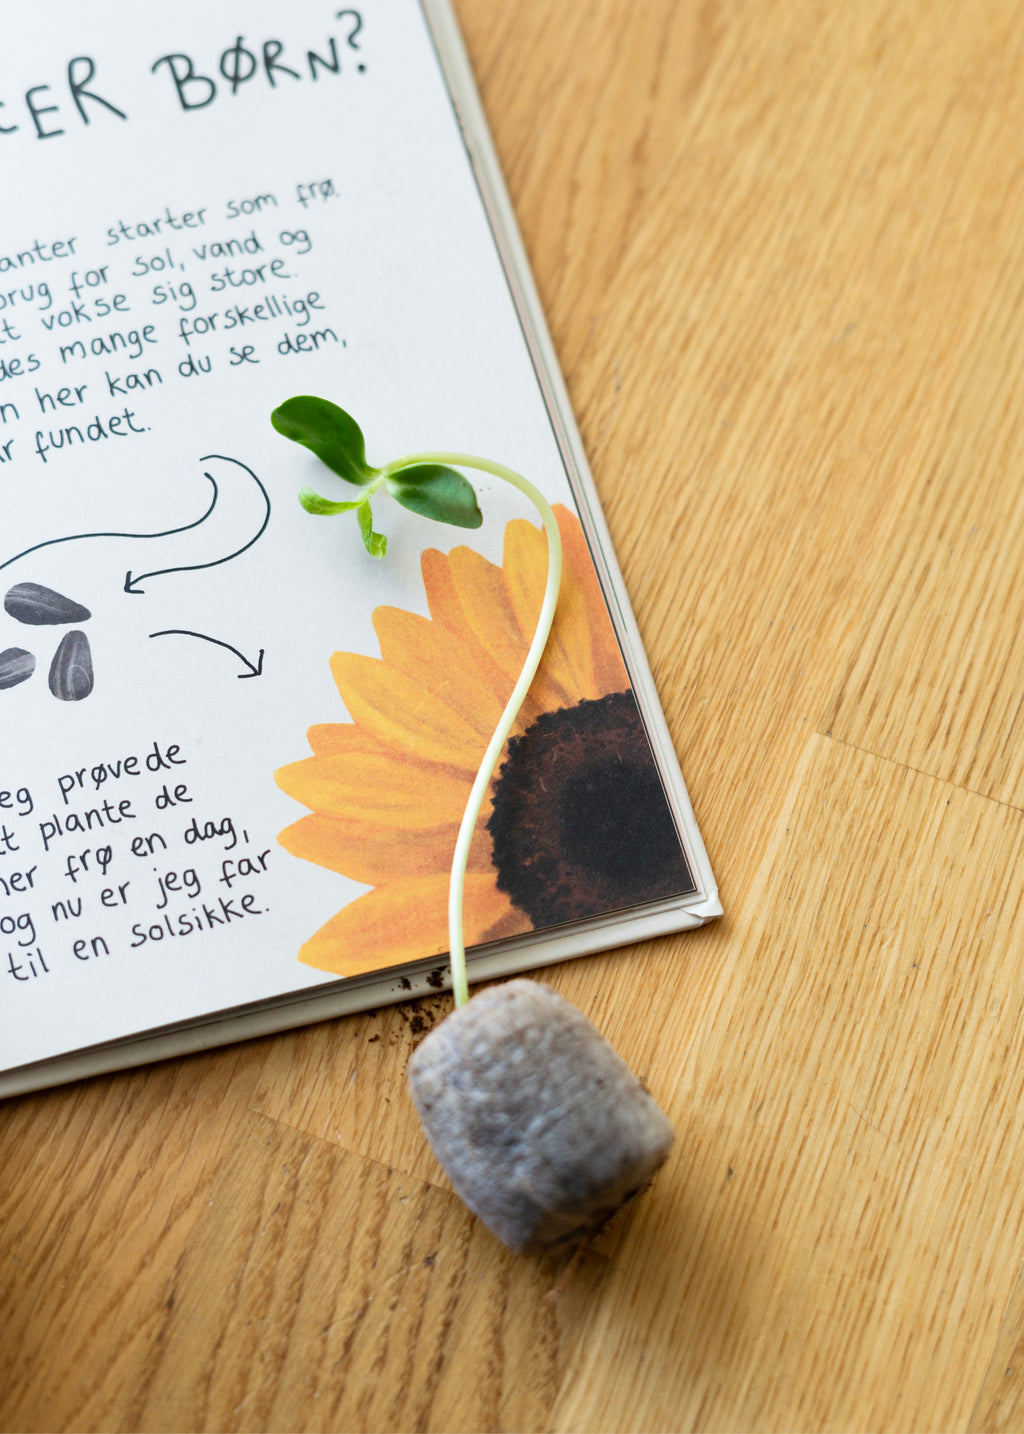 ER BØRN?
anter starter som frø.
brug for sol, vand og
t vokse sig store.
des mange forskellige
n her kan du se dem,
r fundet.
eg prøvede
t plante de
her frø en dag,
og nu er jeg far
til en solsikke.